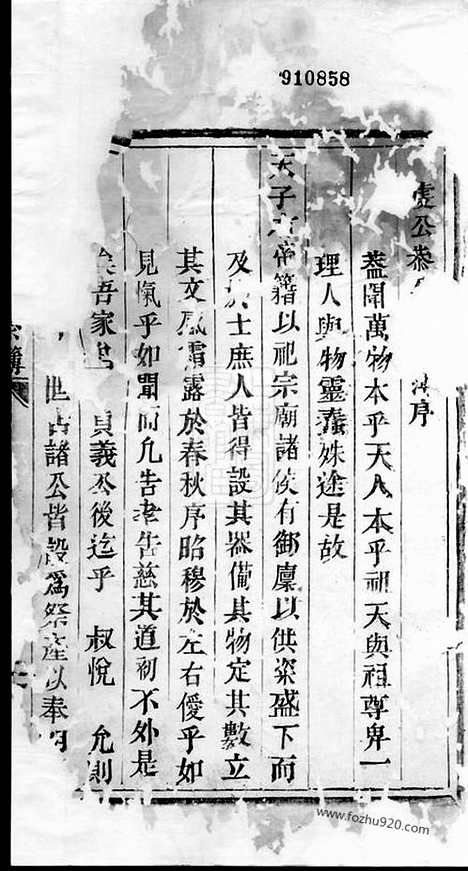 910858
虔公 序
蓋聞萬物本乎天人本乎祖天與祖尊卑一
理人與物靈蠢殊途是故
天子 帝籍以祀宗廟諸侯有御廪以供粢盛下而
及 士庶人皆得設其器備其物定其數立
其文感霜露於春秋序昭穆於左右僾乎如
見愾乎如聞而允告孝告慈其道初不外是
吾家 貞義公後迄乎 叔悅 允則
世 諸公皆設爲祭產以奉
簿
www.fozhu920.com